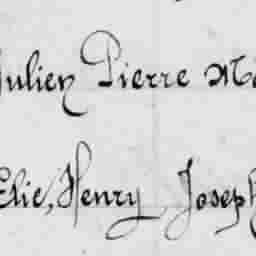 Julien Pierre Ma
Elie, Henry Joseph